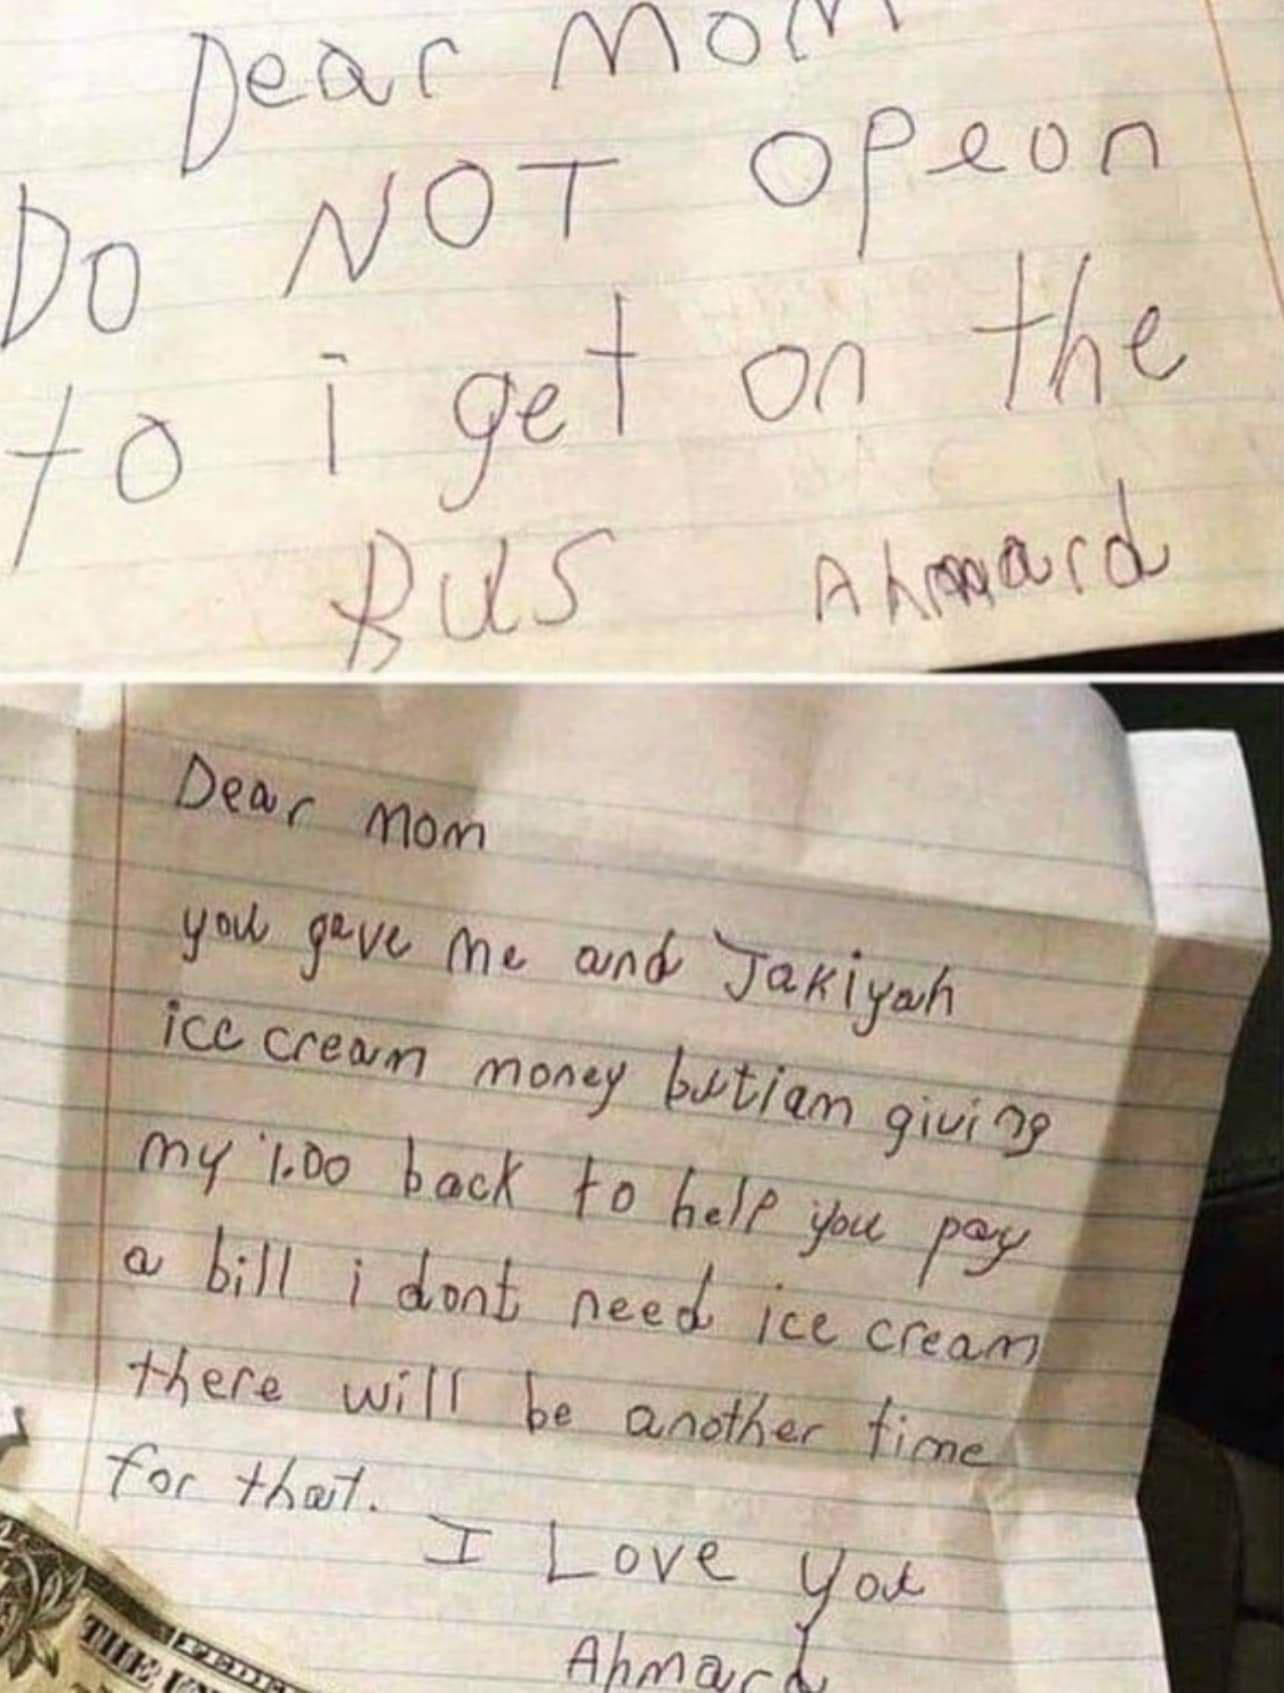 Dear Mom
Do NOT opeon
to i get on the
Bus Ahmard
Dear Mom
you gave me and Jakiyah
ice cream money but iam giving
my 1.00 back to help you pay
a bill i dont need ice cream
there will be another time
for that.
I Love you
Ahmard
THE